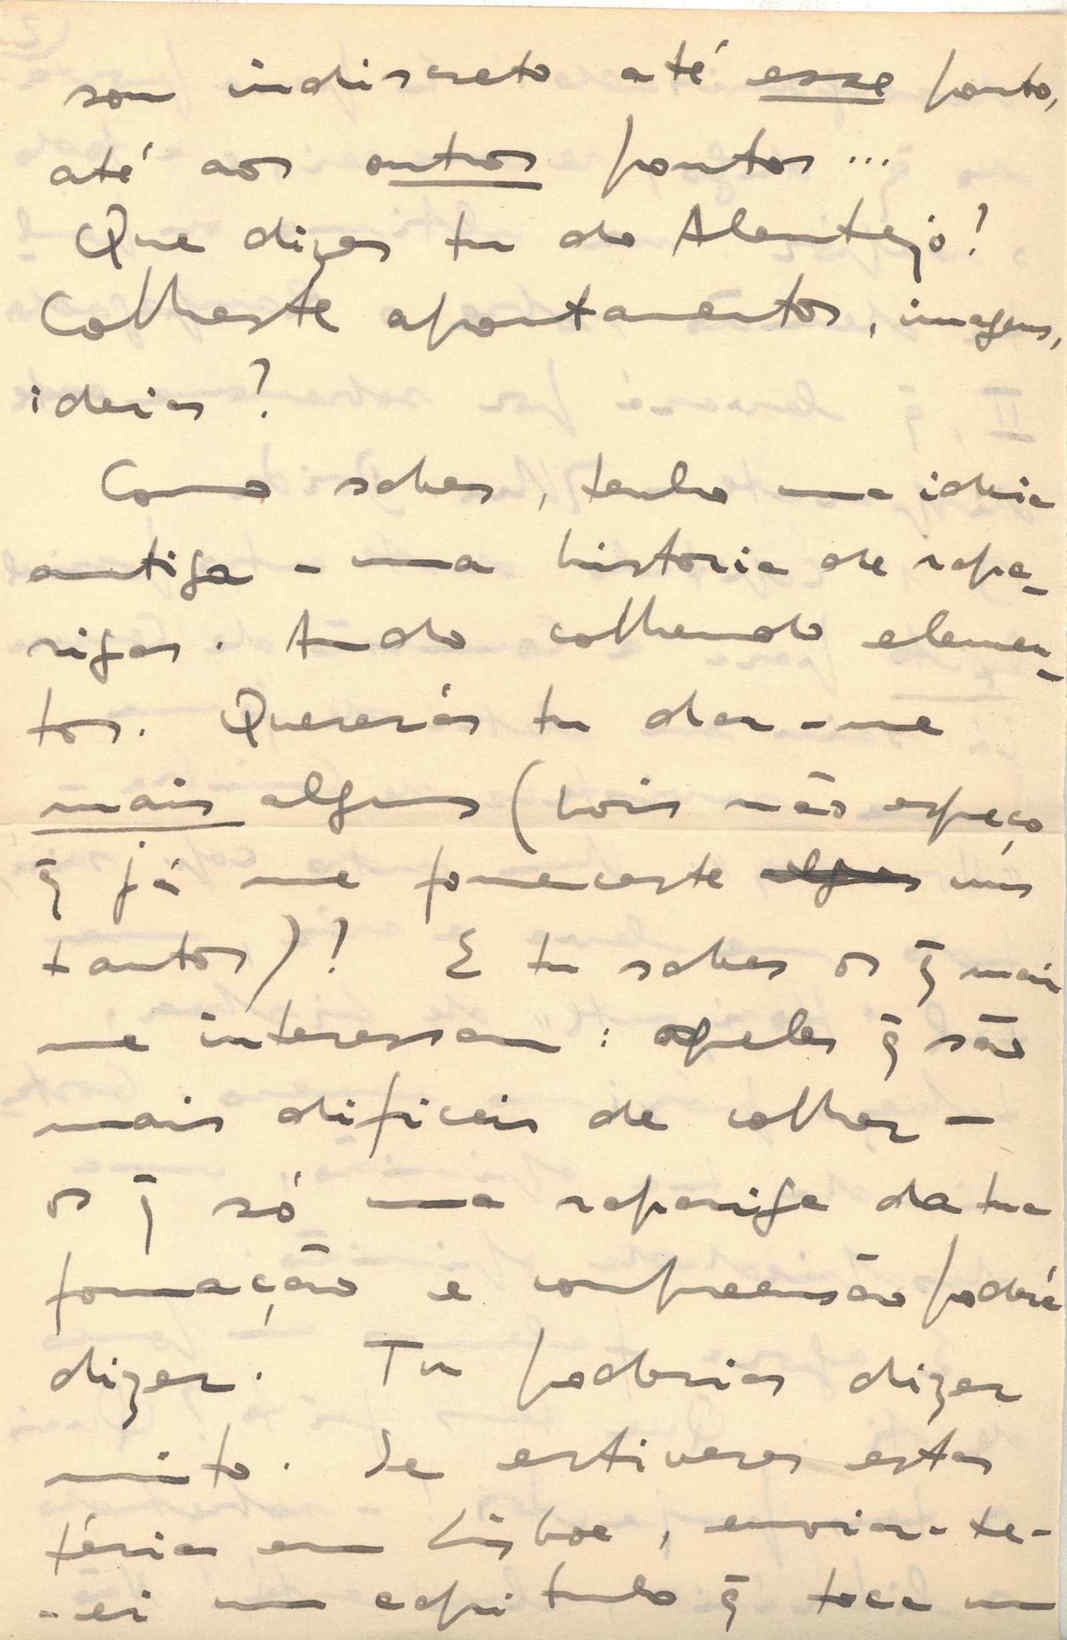 sou indiscreto até esse ponto,
até aos outros pontos...
Que dizes tu do Alentejo?
Colheste apontamentos, imagens,
ideias?
Como sabes, tenho uma ideia
antiga - uma historia de rapa-
rigas. Ando colhendo elemen-
tos. Quererás tu dar-me
mais alguns (pois não esqueço
q̃ já me forneceste alguns uns
tantos)! E tu sabes os q̃ mais
me interessam: aqueles q̃ são
mais dificeis de colher -
os q̃ só uma rapariga da tua
formação e compreensão poderá
dizer. Tu poderias dizer
muito. Se estiveres estas
férias em Lisboa, enviar-te-
-ei um capitulo q̃ toca um